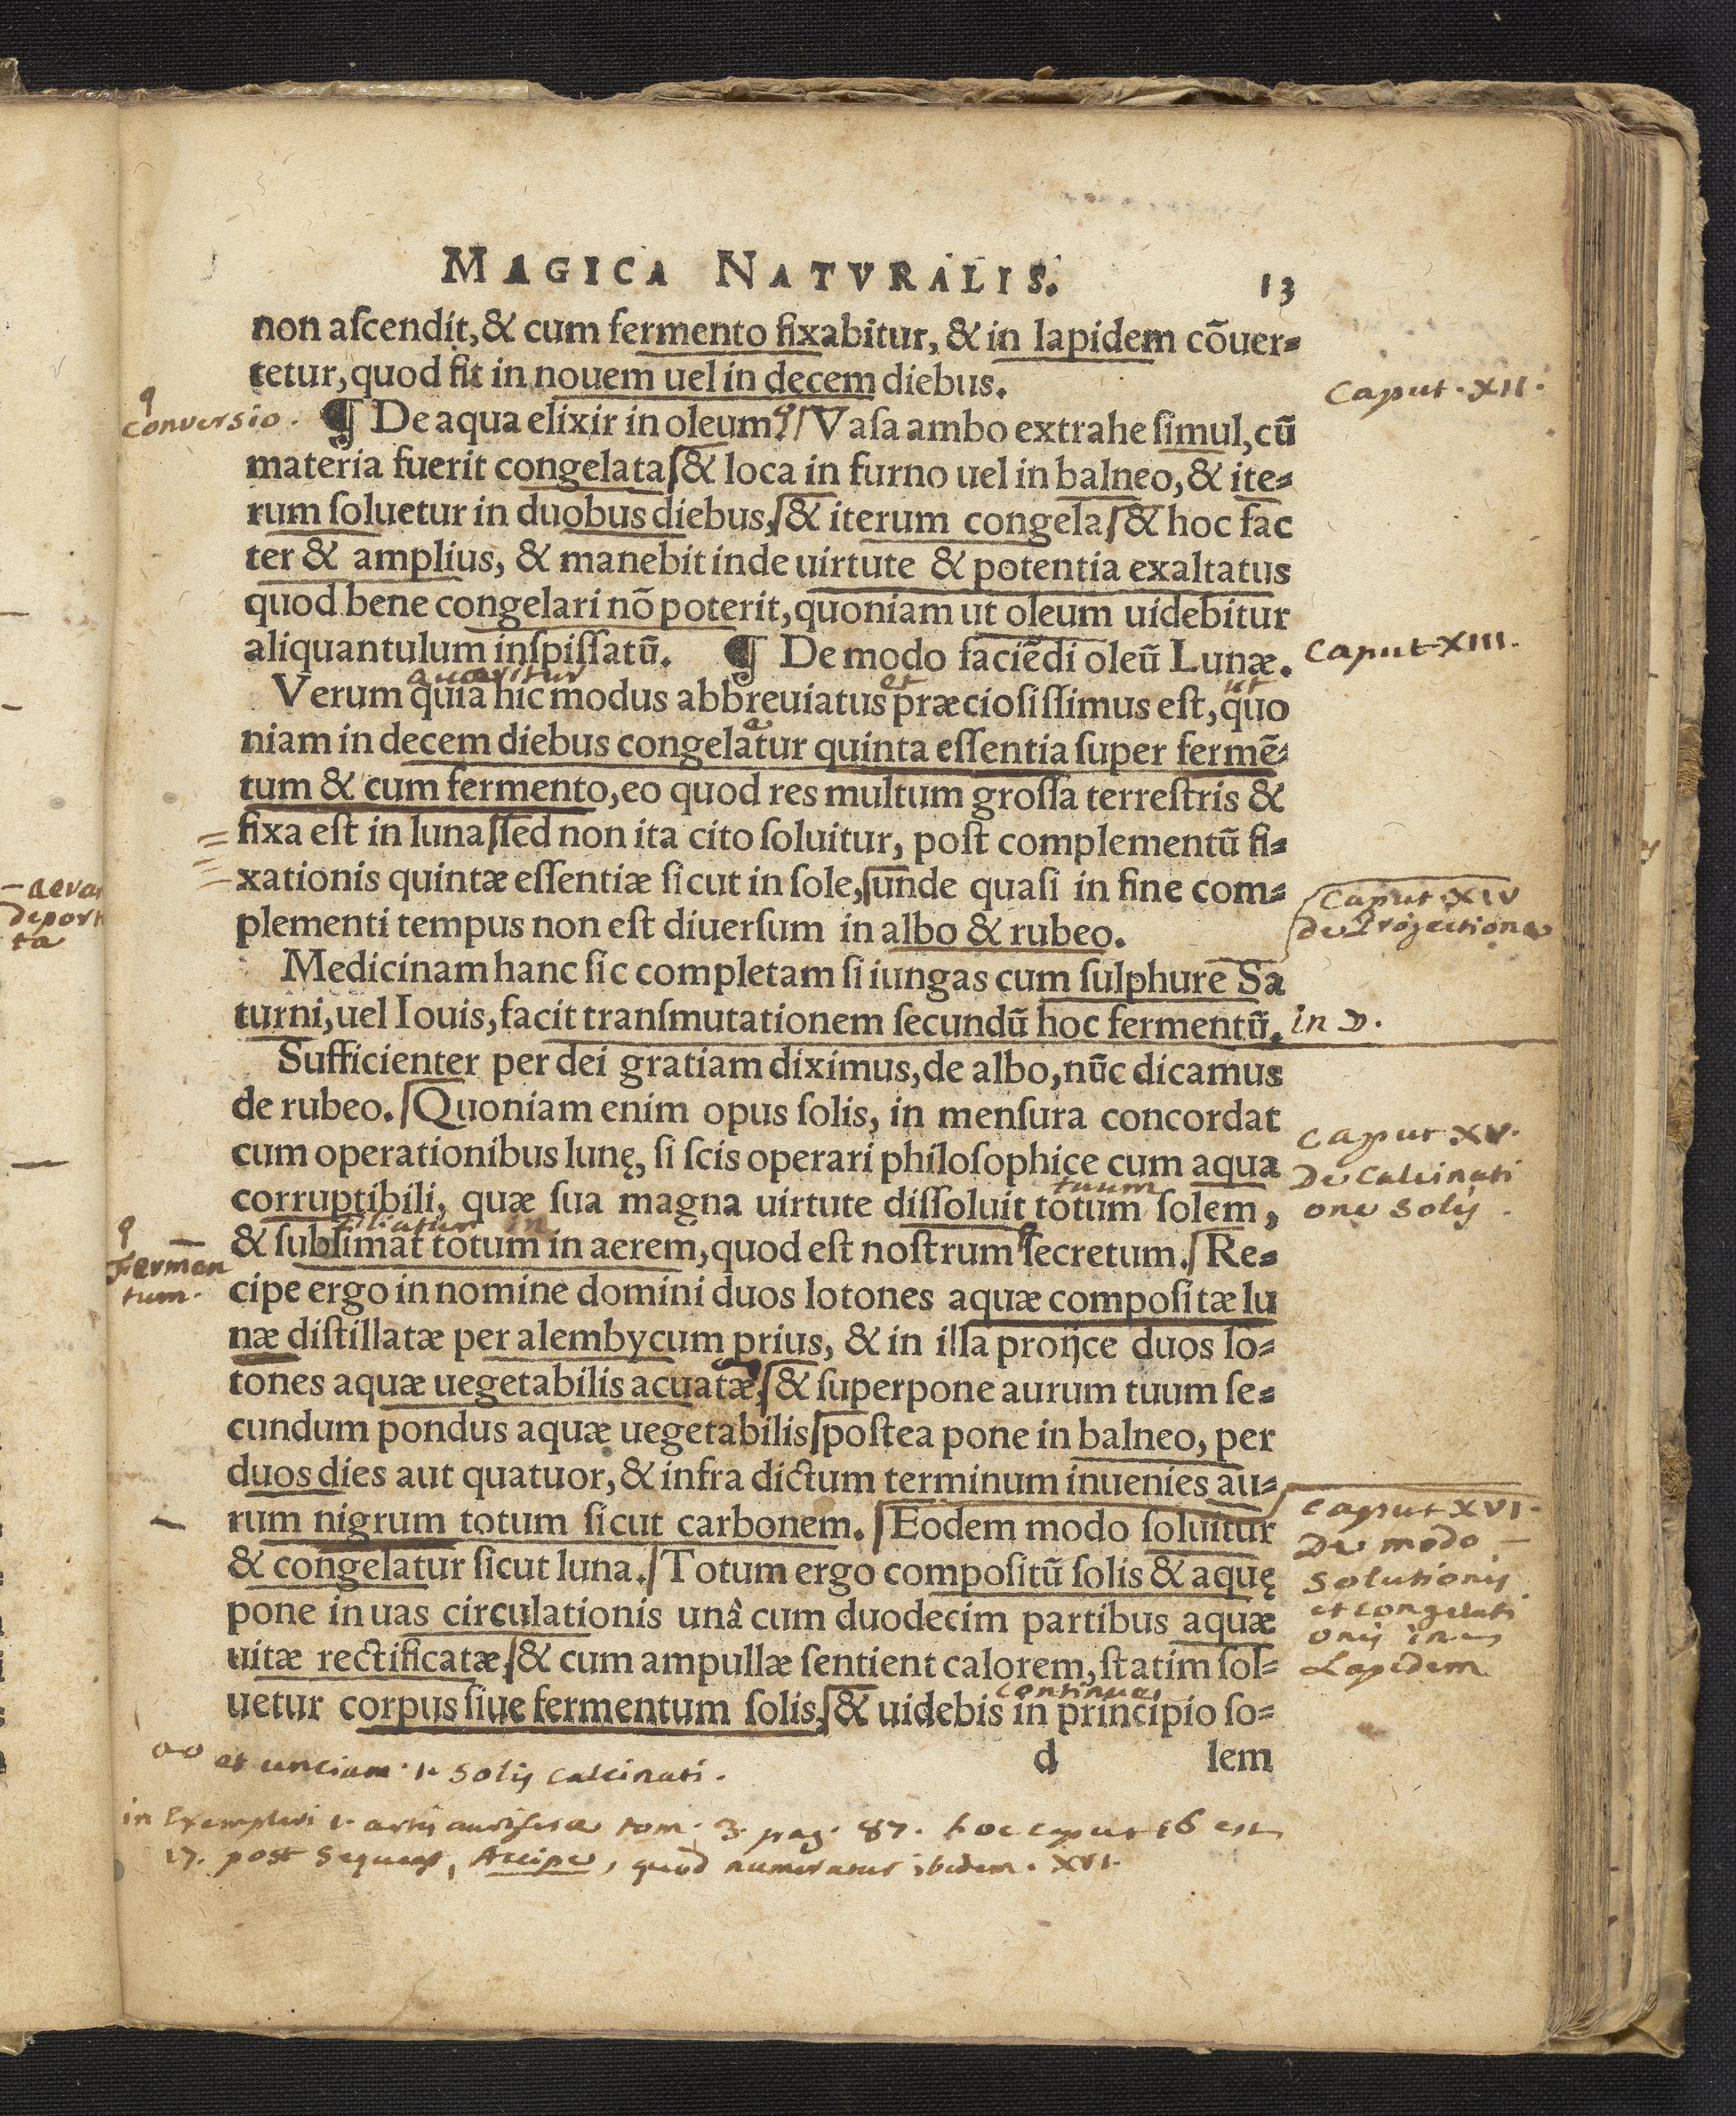 MAGICA NATVRALIS. 13
non aſcendit, & cum fermento fixabitur, & in lapidem cōuer-
tetur, quod fit in nouem uel in decem diebus.
Caput. XII.
conversio.
¶ De aqua elixir in oleum. Vaſa ambo extrahe ſimul, cū
materia fuerit congelata & loca in furno uel in balneo, & ite-
rum ſoluetur in duobus diebus, & iterum congela & hoc fac
ter & amplius, & manebit inde uirtute & potentia exaltatus
quod bene congelari nō poterit, quoniam ut oleum uidebitur
aliquantulum inſpiſſatū. ¶ De modo faciēdi oleū Lunæ.
Caput XIII.
quæritur et ut
Verum quia hic modus abbreuiatus præcioſiſſimus eſt, quo
niam in decem diebus congelatur quinta eſſentia ſuper fermē-
a
tum & cum fermento, eo quod res multum groſſa terreſtris &
fixa eſt in luna ſed non ita cito ſoluitur, poſt complementū fi-
xationis quintæ eſſentiæ ſicut in ſole, unde quaſi in fine com-
plementi tempus non eſt diuerſum in albo & rubeo.
Caput XIV
de Projectione
Medicinam hanc ſic completam ſi iungas cum ſulphure Sa
turni, uel Iouis, facit tranſmutationem ſecundū hoc fermentū.
in ☽.
Sufficienter per dei gratiam diximus, de albo, nūc dicamus
de rubeo. Quoniam enim opus ſolis, in menſura concordat
cum operationibus lunę, ſi ſcis operari philoſophice cum aqua
Caput XV.
De Calcinati
one Solis.
tuum
corruptibili, quæ ſua magna uirtute diſſoluit totum ſolem,
in
& ſublimat totum in aerem, quod eſt noſtrum ſecretum. Re-
Fermen
tum.
cipe ergo in nomine domini duos lotones aquæ compoſitæ lu
næ diſtillatæ per alembycum prius, & in illa proijce duos lo-
tones aquæ uegetabilis acuatæ, & ſuperpone aurum tuum ſe-
cundum pondus aquæ uegetabilis poſtea pone in balneo, per
duos dies aut quatuor, & infra dictum terminum inuenies au-
rum nigrum totum ſicut carbonem. Eodem modo ſoluitur
& congelatur ſicut luna. Totum ergo compoſitū ſolis & aquę
pone in uas circulationis unâ cum duodecim partibus aquæ
uitæ rectificatæ, & cum ampullæ ſentient calorem, ſtatim ſol-
Caput XVI.
De modo
Solutionis
et congelati
onis in
Lapidem
continuas
uetur corpus ſiue fermentum ſolis, & uidebis in principio ſo-
d lem
et unciam 1. Solis calcinati.
in Exemplari artis auriferæ tom. 3. pag. 87. hoc caput 16 est
17. post sequens, Accipe, quod numeratur ibidem. XVI.